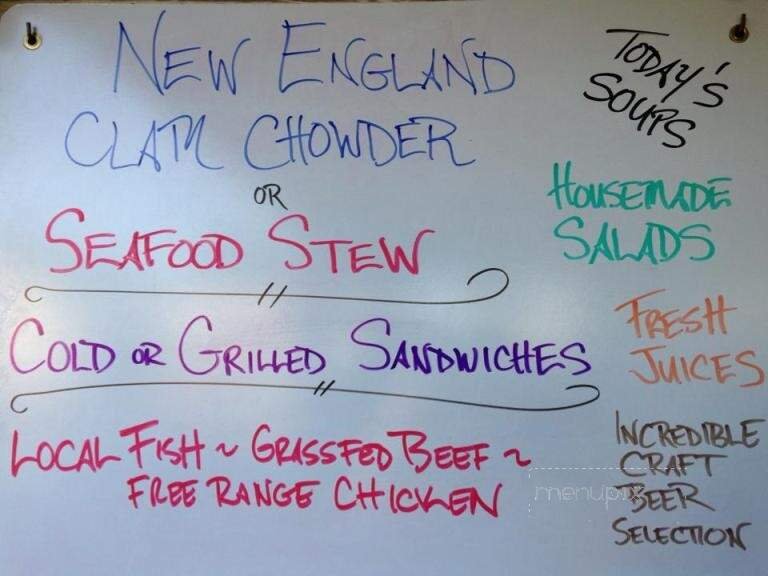 NEW ENGLAND
CLAM CHOWDER
OR
SEAFOOD STEW
COLD OR GRILLED SANDWICHES
LOCAL FISH ~ GRASSFED BEEF ~
FREE RANGE CHICKEN
TODAY'S
SOUPS
HOUSEMADE
SALADS
FRESH
JUICES
INCREDIBLE
CRAFT
BEER
SELECTION
menupix